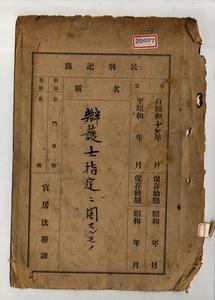 20077
民刑記錄
自昭和十六年 月 保存始期 昭和 年 月
至昭和 年 月 保存終期 昭和 年 月
名稱
辯護士指定ニ關スルモノ
門
官房法務課